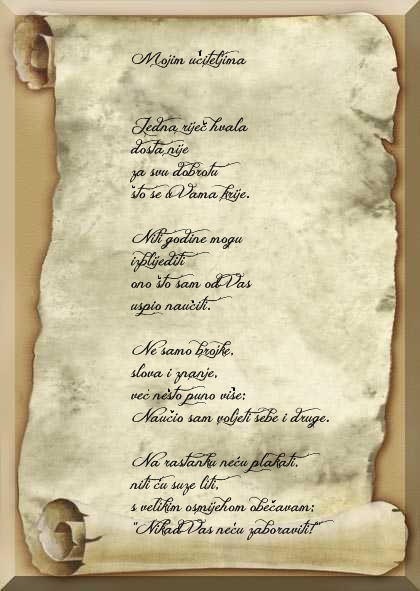 Mojim učiteljima
Jedna riječ hvala
dosta nije
za svu dobrotu
što se u Vama krije.
Niti godine mogu
izblijediti
ono što sam od Vas
uspio naučiti.
Ne samo brojke,
slova i znanje,
već nešto puno više:
Naučio sam voljeti sebe i druge.
Na rastanku neću plakati,
niti ću suze liti,
s velikim osmijehom obečavam:
"Nikad Vas neću zaboraviti!"